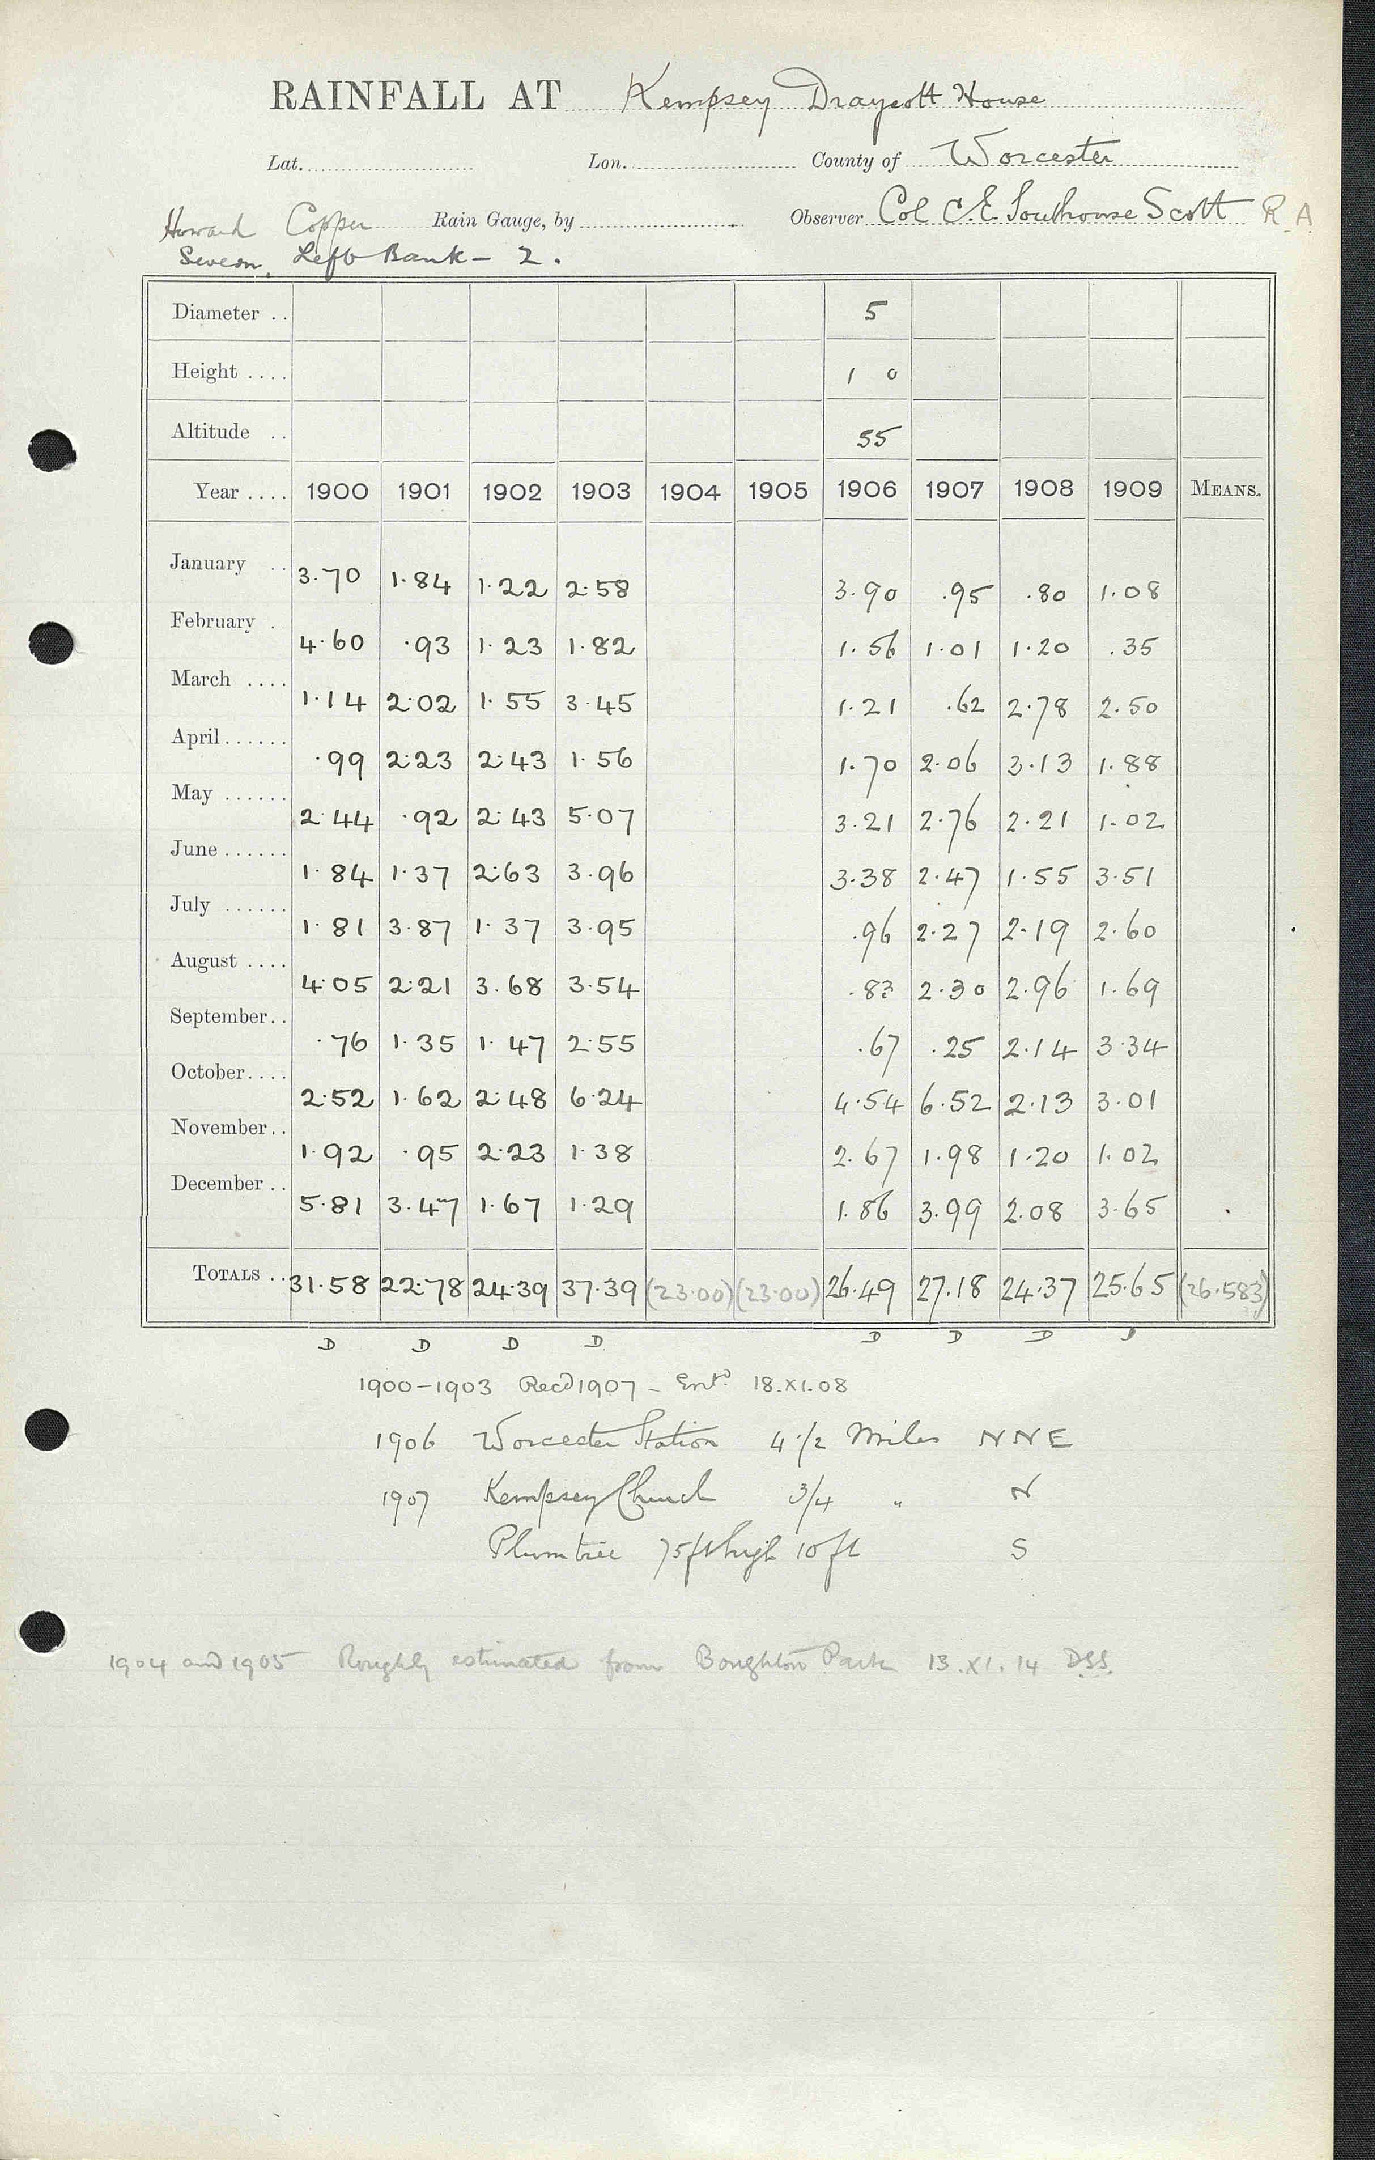 RAINFALL AT Kempsey Draycott House
Lat. Lon. County of Worcester
Howard Copper Rain Gauge, by Observer Col C. E. Southouse Scott R A
Severn, Left Bank - 2.
Diameter .. 5
Height .... 1 0
Altitude .. 55
Year .... 1900 1901 1902 1903 1904 1905 1906 1907 1908 1909 MEANS.
January .. 3.70 1.84 1.22 2.58 3.90 .95 .80 1.08
February . 4.60 .93 1.23 1.82 1.56 1.01 1.20 .35
March .... 1.14 2.02 1.55 3.45 1.21 .62 2.78 2.50
April ...... .99 2.23 2.43 1.56 1.70 2.06 3.13 1.88
May ...... 2.44 .92 2.43 5.07 3.21 2.76 2.21 1.02
June ...... 1.84 1.37 2.63 3.96 3.38 2.47 1.55 3.51
July ...... 1.81 3.87 1.37 3.95 .96 2.27 2.19 2.60
August .... 4.05 2.21 3.68 3.54 .83 2.30 2.96 1.69
September.. .76 1.35 1.47 2.55 .67 .25 2.14 3.34
October.... 2.52 1.62 2.48 6.24 4.54 6.52 2.13 3.01
November.. 1.92 .95 2.23 1.38 2.67 1.98 1.20 1.02
December .. 5.81 3.47 1.67 1.29 1.86 3.99 2.08 3.65
TOTALS .. 31.58 22.78 24.39 37.39 (23.00) (23.00) 26.49 27.18 24.37 25.65 (26.583)
D D D D D D D D
1900-1903 Recd 1907 - Entd 18.XI.08
1906 Worcester Station 4 1/2 Miles NNE
1907 Kempsey Church 3/4 " N
Plumtree 75ft high 10 ft S
1904 and 1905 Roughly estimated from Boughton Park 13.XI.14 D.S.S.